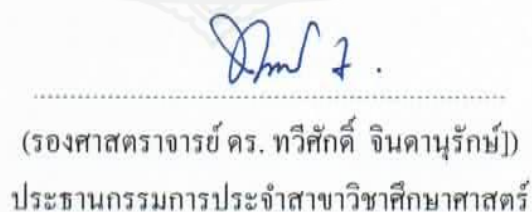 (รองศาสตราจารย์ ดร. ทวีศักดิ์ จินดานุรักษ์])
ประธานกรรมการประจำสาขาวิชาศึกษาศาสตร์